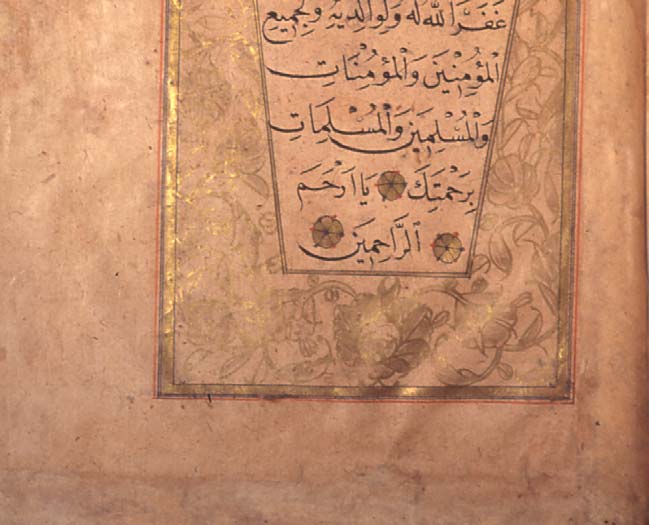 غَفَرَ اللّٰهُ لَهُ وَلِوَالِدَيْهِ وَلِجَمِيْعِ
الْمُؤْمِنِيْنَ وَالْمُؤْمِنَاتِ
وَالْمُسْلِمِيْنَ وَالْمُسْلِمَاتِ
بِرَحْمَتِكَ يَا اَرْحَمَ
الرَّاحِمِيْنَ